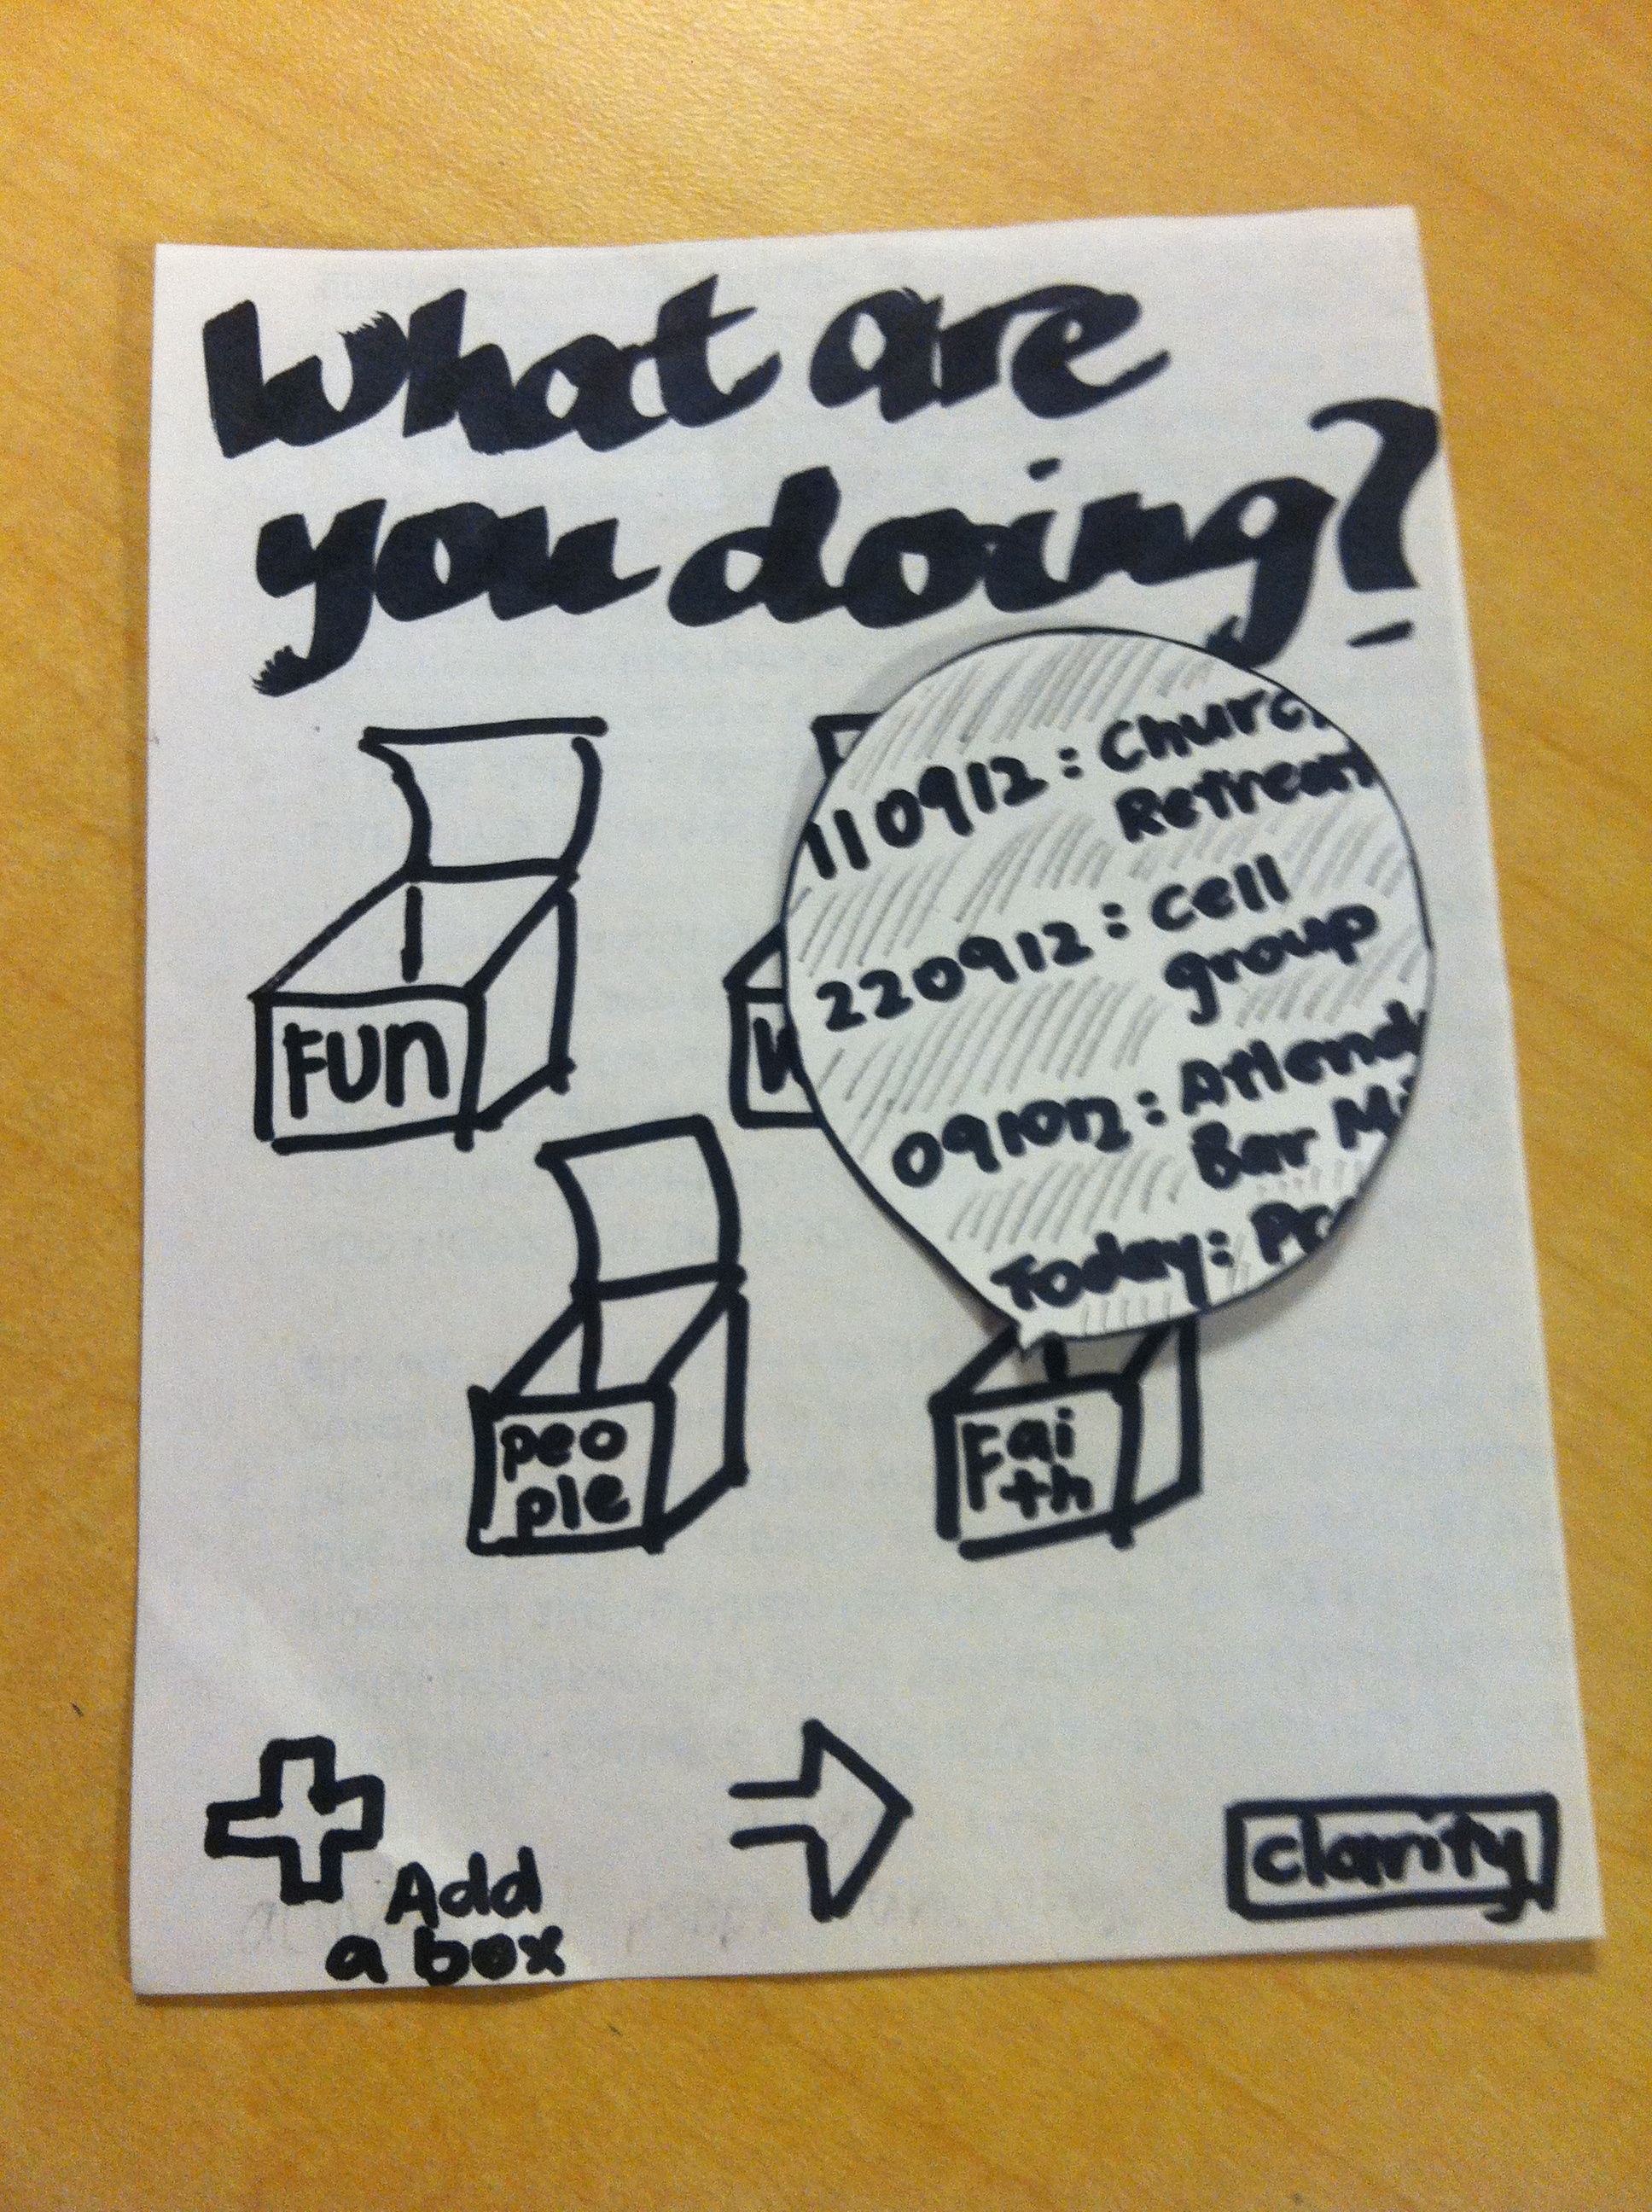 What are
you doing?
110912: Church
Retreat
220912: Cell
group
091012: Attend
Bar
Today:
Fun
peo
ple
Fai
th
Add
a box
clarity